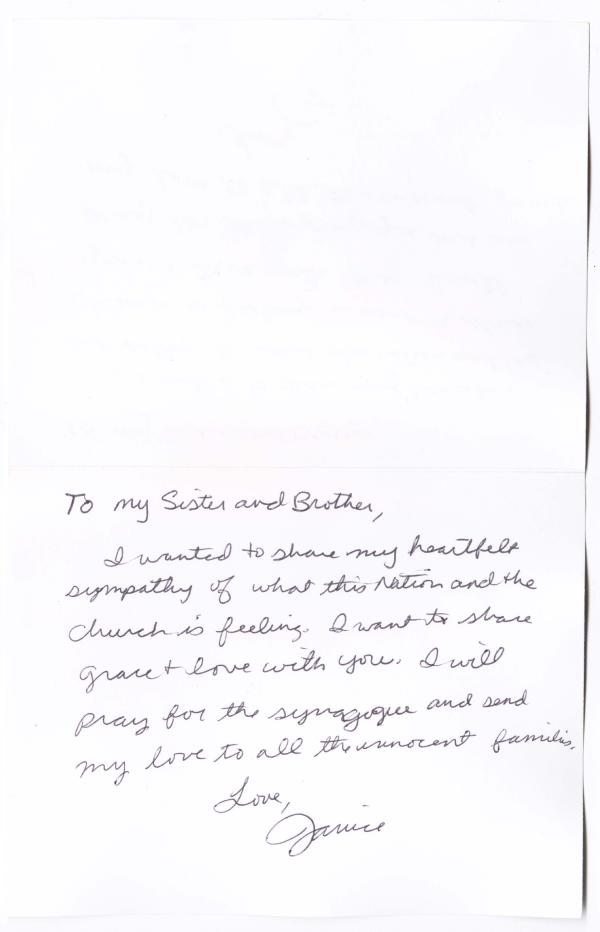 To my Sister and Brother,
I wanted to share my heartfelt
sympathy of what this Nation and the
church is feeling. I want to share
grace + love with you. I will
pray for the synagogue and send
my love to all the innocent families.
Love,
Janice